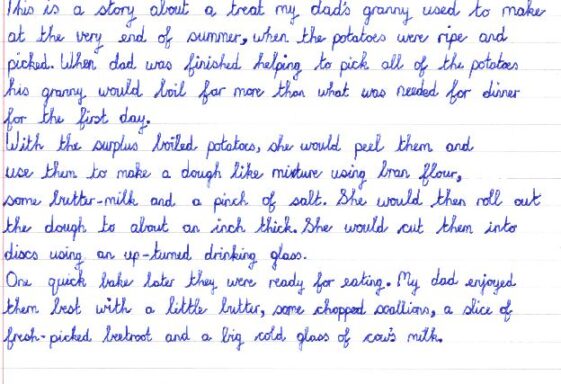 This is a story about a treat my dad's granny used to make
at the very end of summer, when the potatoes were ripe and
picked. When dad was finished helping to pick all of the potatoes
his granny would boil far more than what was needed for dinner
for the first day.
With the surplus boiled potatoes, she would peel them and
use them to make a dough like mixture using bran flour,
some butter-milk and a pinch of salt. She would then roll out
the dough to about an inch thick. She would cut them into
discs using an up-turned drinking glass.
One quick bake later they were ready for eating. My dad enjoyed
them best with a little butter, some chopped scallions, a slice of
fresh-picked beetroot and a big cold glass of cow's milk.